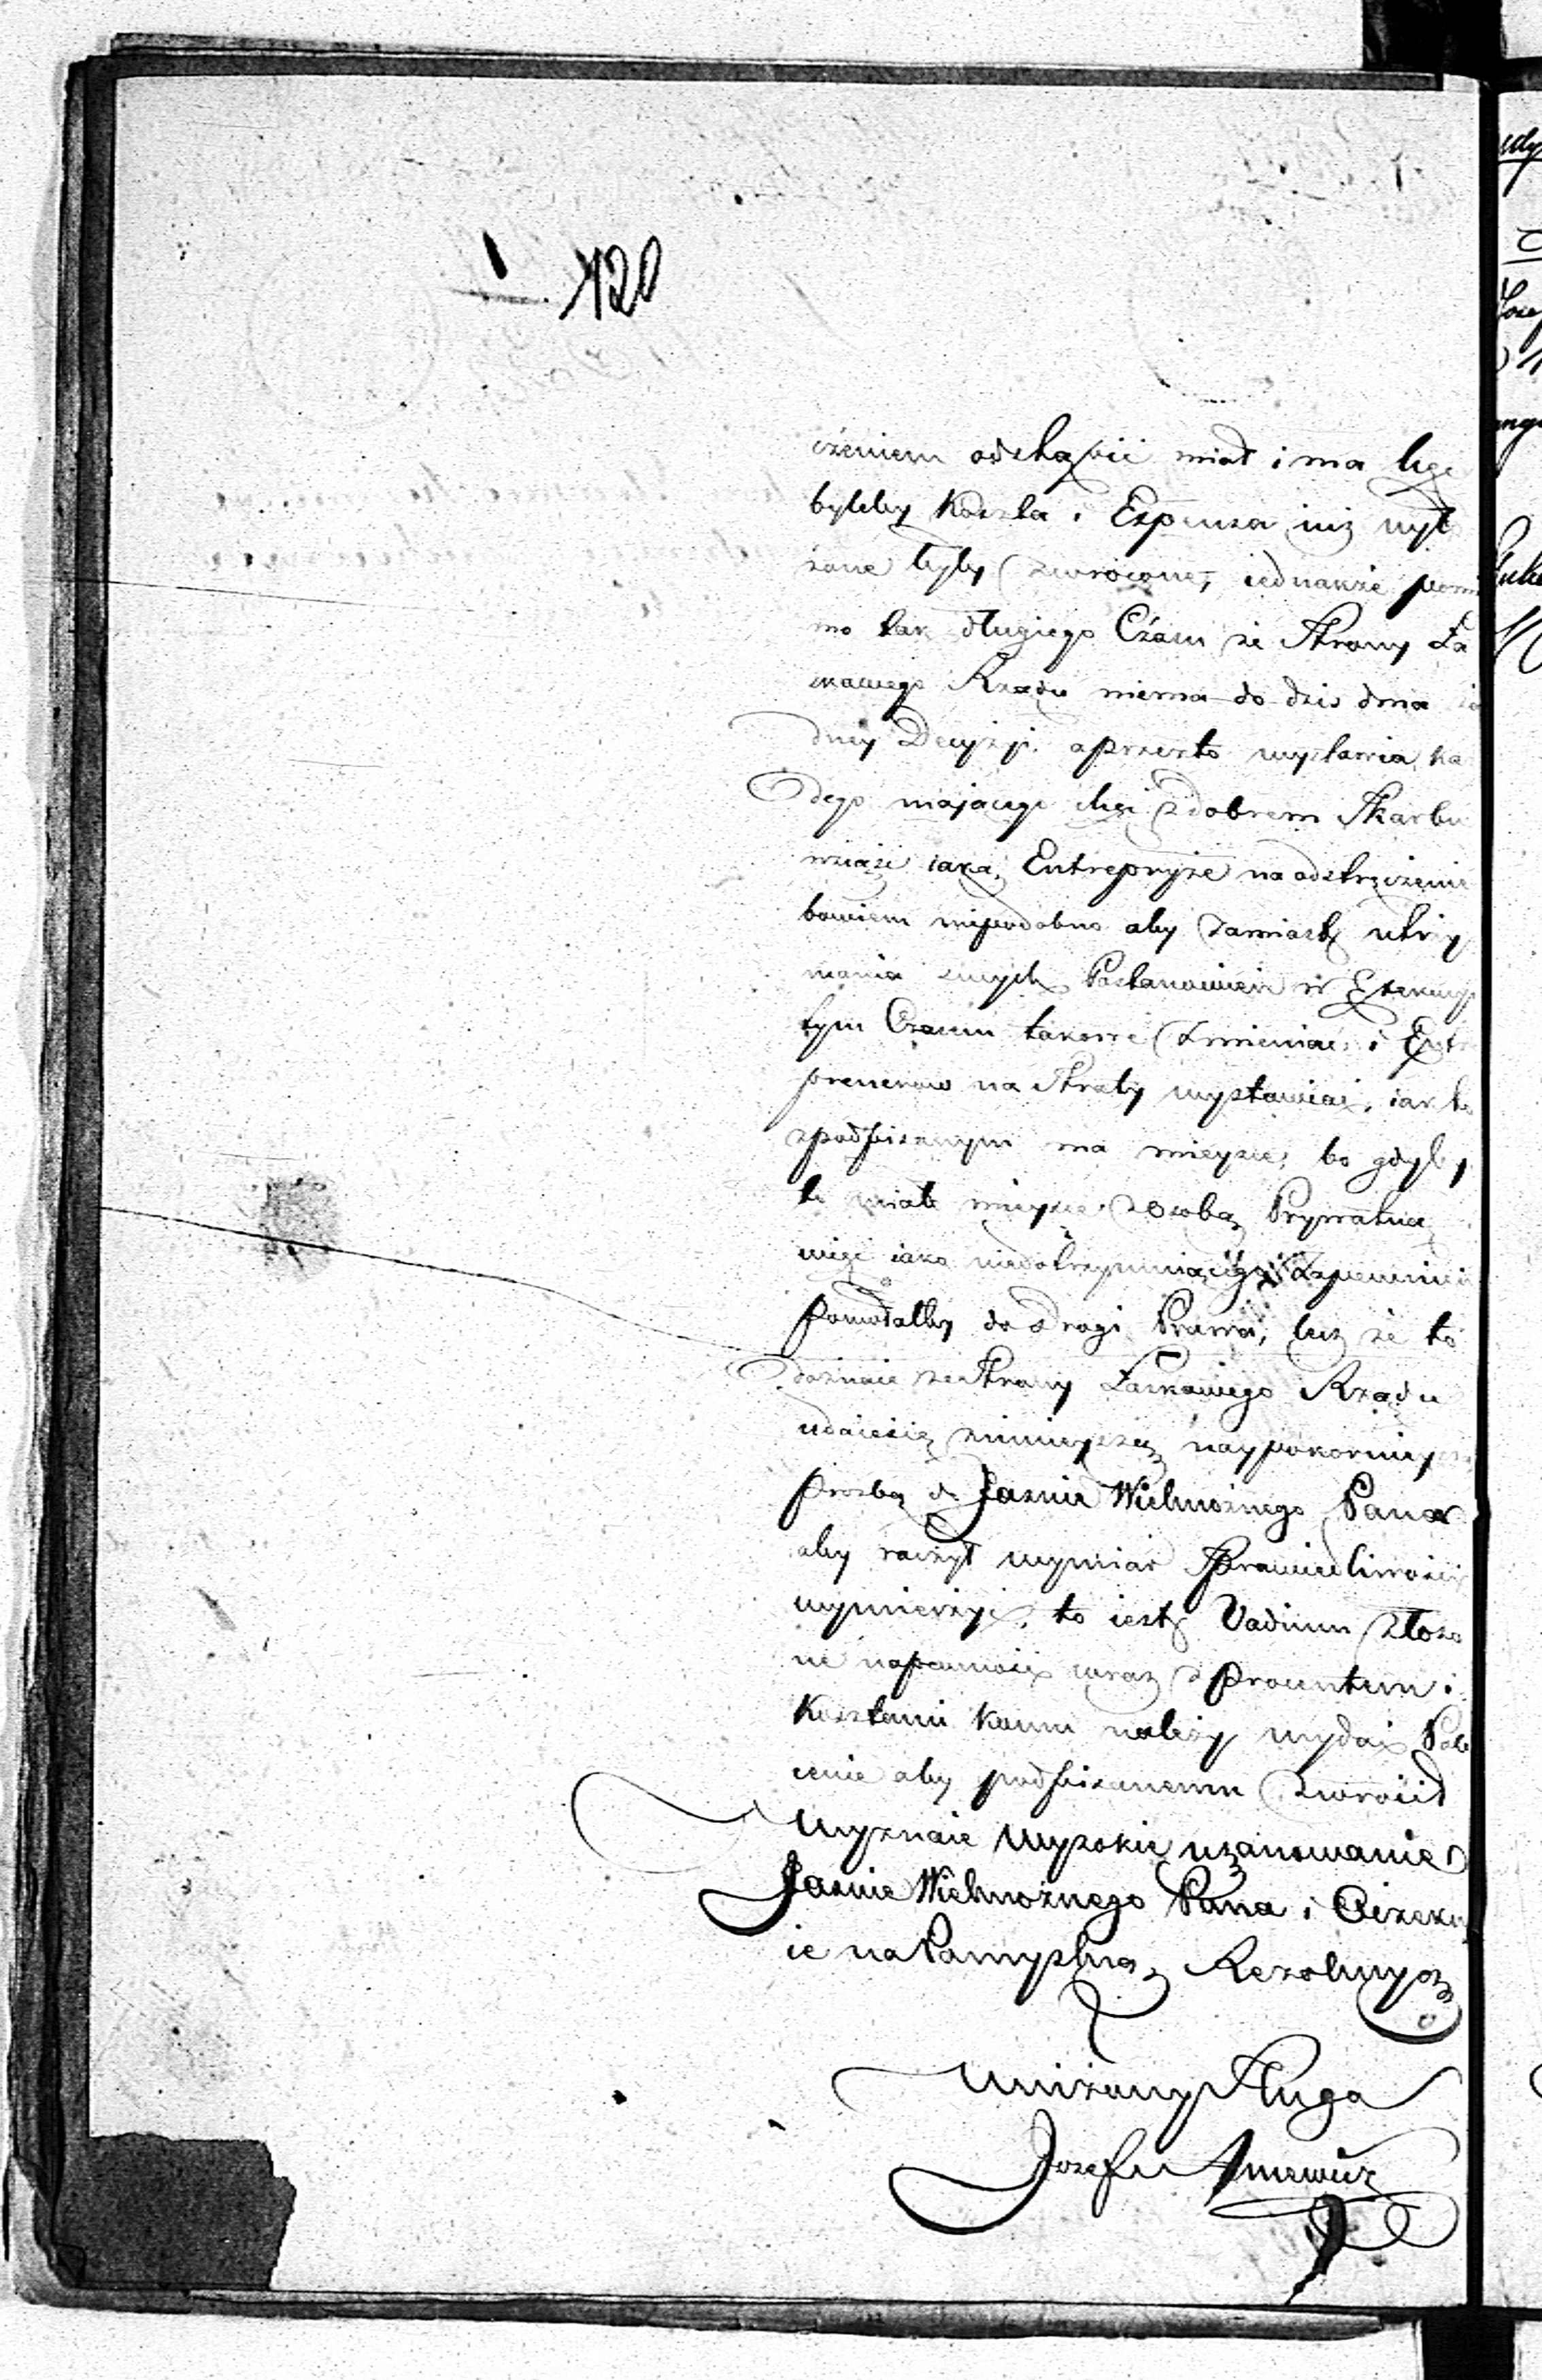 120
czeniem odstąpić miał i ma tego
byleby Koszta i Expensa iuż wyło
żone były zwrocone, iednakże pomi
mo tak długiego Czasu ze Strony Ła
skawego Rządu niema do dziś dnia ża
dney Decyzji, aprzezto wystawia, ka
dego mającego chęć zdobrem Skarbu
wziąść iaką Entrepryzę na odstręczenie
bowiem niepodobno aby zamiast utrzy
mania swych Postanowień w
tym Czasem takowe zmieniać i Entre
prenerow na Straty wystawiać, iak to
zpodpisanym ma mieysce, bo gdyby
to miało mieysce zosobą Prywatną
więc iako niedotrzymuiącego Zapewnień
powołałby do drogi Prawa, lecz że to
doznaie ze Strony Łaskawego Rządu
udaiesię ninieyszą naypokornieysz
proźbą do Jaśnie Wielmożnego Pana
aby raczył wymiar Sprawiedliwości
wymierzyć, to iest Vadium złożo
ne napewność wraz z procentem i
Kosztami komu należy wydać Pole
cenie aby podpisanemu zwrócił
Wyznaie wysokie uszanowanie
Jaśnie Wielmożnego Pana i Oczeku
ie na Pomyślną Rezolucyą
Uniżony Sługa
Jozef